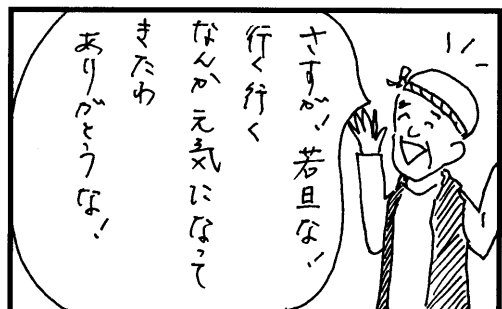 さすが！若旦な！
行く行く
なんか元気になって
きたわ
ありがとうな！